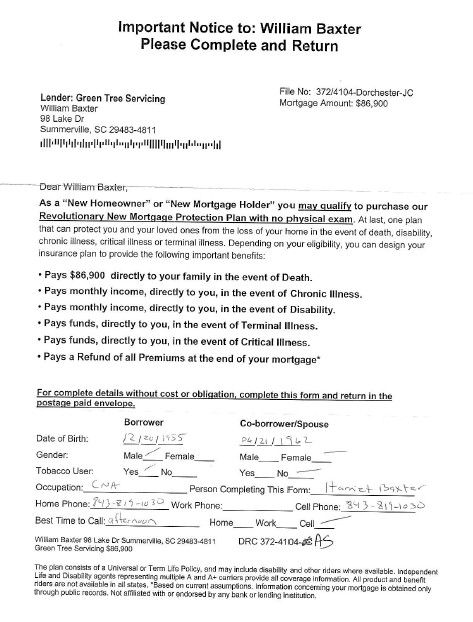 Important Notice to: William Baxter
Please Complete and Return
File No: 372/4104-Dorchester-JC
Mortgage Amount: $86,900
Lender: Green Tree Servicing
William Baxter
98 Lake Dr
Summerville, SC 29483-4811
Dear William Baxter,
As a “New Homeowner” or “New Mortgage Holder” you may qualify to purchase our
Revolutionary New Mortgage Protection Plan with no physical exam. At last, one plan
that can protect you and your loved ones from the loss of your home in the event of death, disability,
chronic illness, critical illness or terminal illness. Depending on your eligibility, you can design your
insurance plan to provide the following important benefits:
• Pays $86,900 directly to your family in the event of Death.
• Pays monthly income, directly to you, in the event of Chronic Illness.
• Pays monthly income, directly to you, in the event of Disability.
• Pays funds, directly to you, in the event of Terminal Illness.
• Pays funds, directly to you, in the event of Critical Illness.
• Pays a Refund of all Premiums at the end of your mortgage*
For complete details without cost or obligation, complete this form and return in the
postage paid envelope.
Borrower Co-borrower/Spouse
Date of Birth: 12/20/1955 04/21/1962
Gender: Male Female Male Female
Tobacco User: Yes No Yes No
Occupation: CNA Person Completing This Form: Harriet Baxter
Home Phone: 843-819-1030 Work Phone: Cell Phone: 843-819-1030
Best Time to Call: afternoon Home Work Cell
William Baxter 98 Lake Dr Summerville, SC 29483-4811 DRC 372-4104- AS
Green Tree Servicing $86,900
The plan consists of a Universal or Term Life Policy, and may include disability and other riders where available. Independent
Life and Disability agents representing multiple A and A+ carriers provide all coverage information. All product and benefit
riders are not available in all states. *Based on current assumptions. Information concerning your mortgage is obtained only
through public records. Not affiliated with or endorsed by any bank or lending institution.